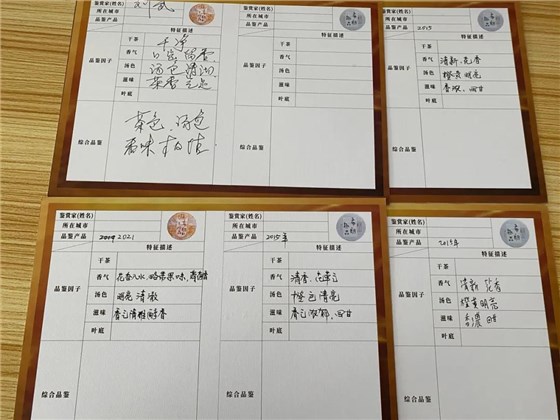 鉴赏家(姓名)
所在城市
品鉴产品
特征描述
品鉴因子
干茶
干净
香气
汤色
滋味
茶香
叶底
综合品鉴
茶色、汤色
鉴赏家(姓名)
所在城市
品鉴产品
特征描述
品鉴因子
干茶
香气
汤色
滋味
叶底
综合品鉴
所在城市
品鉴产品 2015
特征描述
品鉴因子
干茶
香气 清新,花香
汤色 橙黄明亮
滋味 香浓、回甘
叶底
综合品鉴
鉴赏家(姓名)
所在城市
品鉴产品 2021
特征描述
品鉴因子
干茶
香气 花香入水,略带果味,
汤色 明亮清澈
滋味
叶底
综合品鉴
鉴赏家(姓名)
所在城市
品鉴产品 2015年
特征描述
品鉴因子
干茶
香气 清香,
汤色 橙色清亮
滋味 回甘
叶底
综合品鉴
鉴赏家(姓名)
所在城市
品鉴产品 2015年
特征描述
品鉴因子
干茶
香气 清新 花香
汤色 橙黄明亮
滋味 香浓 回甘
叶底
综合品鉴